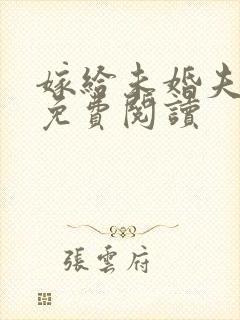 嫁給未婚夫
免費閱讀
張雲府